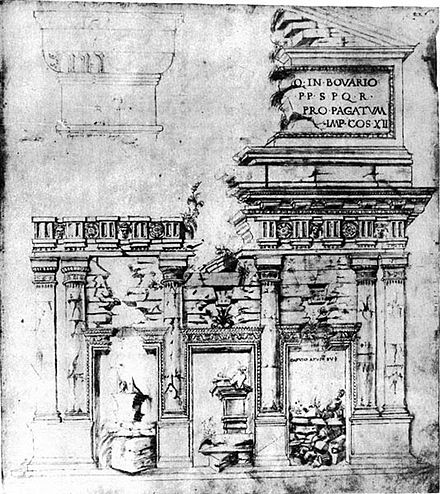 O · IN · BOVARIO
P · P · S · P · Q · R ·
PRO · PAGATVM
· IMP · COS · XII